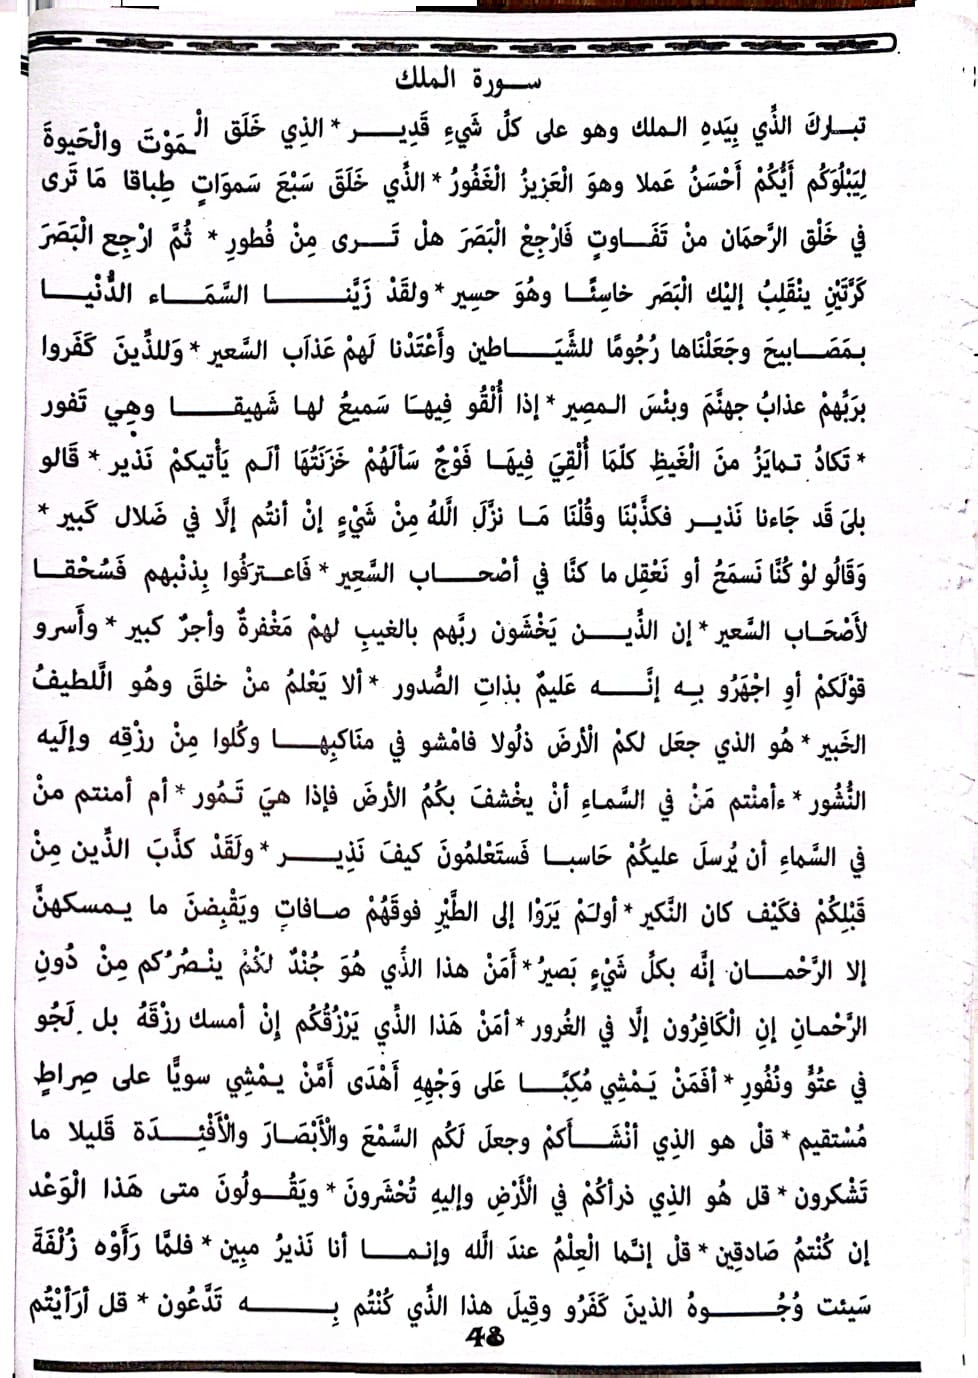 سورة الملك
تبارك الذِّي بِيَدهِ الملك وهو على كلِّ شَيءِ قَدِير * الذِي خَلَق الْمَوْتَ والْحَيوةَ
لِيَبْلُوَكُم أَيُّكُمْ أَحْسَنُ عَملا وهوَ الْعَزِيزُ الْغَفُورُ * الذِّي خَلَقَ سَبْعَ سَموَاتٍ طِباقا مَا تَرى
في خَلْق الرَّحمَان منْ تَفَاوتٍ فَارْجِعْ الْبَصَرَ هلْ تَرى مِنْ فُطورِ * ثُمَّ ارْجِع الْبَصَرَ
كَرَّتَيْنِ ينْقَلِبُ إليْك الْبَصَر خاسِئًا وهُوَ حسِير * ولقَدْ زَيَّنا السَّمَاء الدُّنْيا
بمَصَابيحَ وجَعَلْنَاها رُجُومًا للشَّيَاطين وأَعْتَدْنا لَهمْ عَذاَب السَّعير * وَللذِّينَ كَفَروا
برَبِّهمْ عذابُ جهنَّمَ وبئْسَ المصِير * إذا أُلْقُو فِيهَا سَميعُ لها شَهيقا وهِي تَفور
* تَكادُ تمايَزُ منَ الْغَيظِ كلّمَا أُلْقِيَ فِيهَا فَوْجٌ سَألَهُمْ خَزَنَتُهَا ألَم يَأْتيكمْ نَذير * قَالو
بلىَ قَد جَاءنا نَذير فكذَّبْنَا وقُلْنَا مَا نزَّلَ اللَّهُ مِنْ شَيْءٍ إنْ أنتُم إلَّا في ضَلال كَبير *
وَقَالُو لوْ كُنَّا نَسمَعُ أو نَعْقِل ما كنَّا في أصْحاب السَّعِير * فَاعترَفُوا بِذنْبهم فَسُحْقا
لأَصْحَاب السَّعير * إن الذِّين يَخْشَون ربَّهم بالغيبِ لهمْ مَغْفرةٌ وأجرٌ كبير * وأَسرو
قوْلَكمْ أوِ اجْهَرُو بِه إنَّه عَليمٌ بذاتِ الصُّدور * ألا يَعْلمُ منْ خلقَ وهُو الَّلطيفُ
الخَبير * هُو الذي جعَل لكمْ الْأرضَ ذلُولا فامْشو في منَاكبِها وكُلوا مِنْ رزْقِه وإلَيه
النُّشُور * ءأمنْتم مَنْ في السَّماءِ أنْ يخْشفَ بكُمُ الأرضَ فإذا هيَ تَمُور * أم أمنتم منْ
في السَّماءِ أن يُرسلَ عليكُمْ حَاسبا فَستَعْلمُونَ كيفَ نَذِير * ولَقَدْ كذَّبَ الذِّين مِنْ
قَبْلِكُمْ فكَيْف كان النَّكير * أولمْ يَرَوْا إلى الطَّيْرِ فوقَهُمْ صافاتٍ ويَقْبِضنَ ما يمسكهنَّ
إلا الرَّحْمان إنَّه بكلِّ شَيْءٍ بَصيرُ * أَمَنْ هذا الذِّي هُوَ جُنْدٌ لكُمْ ينْصُرُكم مِنْ دُونِ
الرَّحْمانِ إنِ الْكَافِرُون إلَّا في الغُرور * أمَنْ هَذا الذِّي يَرْزُقُكُم إنْ أمسك رزْقَهُ بل لَجُو
في عتُوُّ ونُفُورِ * أفَمَنْ يَمْشِي مُكِبًّا عَلى وَجْهِهِ أَهْدَى أَمَّنْ يمْشِي سويًّا على صِراطٍ
مُسْتقيم * قلْ هو الذِي أنْشَأكمْ وجعلَ لَكُم السَّمْعَ والْأَبْصَارَ والْأَفْئِدَة قَليلا ما
تَشْكرون * قل هُو الذي ذرأكُمْ في الْأَرْضِ وإليهِ تُحْشَرونَ * ويَقُولُونَ متى هَذا الْوَعْد
إن كُنْتمُ صَادقِين * قلْ إنَّما الْعِلْمُ عندَ الَّله وإنما أنا نَذيرُ مبِين * فلمَّا رَأَوْه زُلْفَةَ
سَيئت وُجُوهُ الذينَ كَفَرُو وقِيلَ هذا الذِّي كُنْتُم بِه تَدَّعُون * قل أرَأيْتُم
48